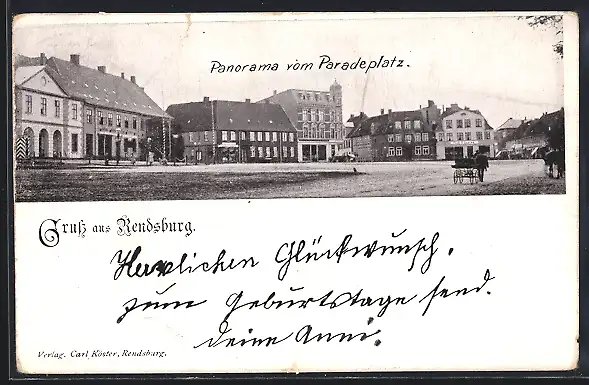 Panorama vom Paradeplatz.
Gruß aus Rendsburg.
Herzlichen Glückwunsch,
zum Geburtstage send.
deine Anni.
Verlag. Carl Köster, Rendsburg.